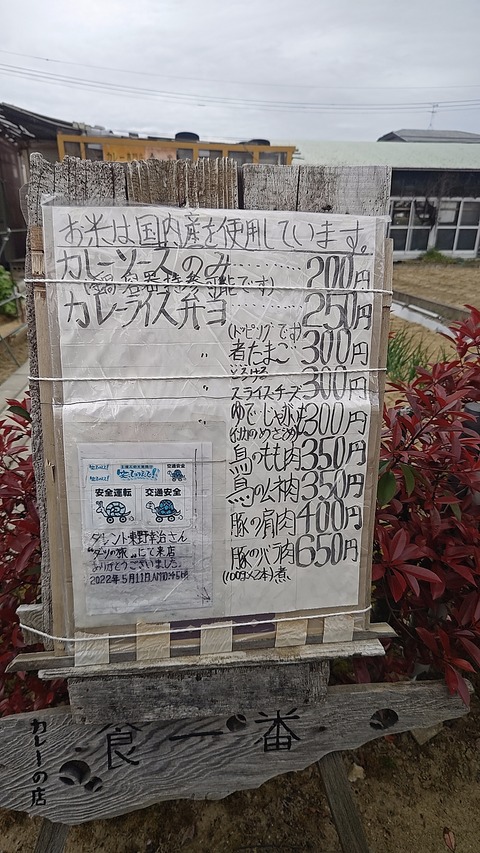 お米は国内産を使用しています。
カレーソースのみ………200円
(鍋 容器持参可能です)
カレーライス弁当 250円
(トッピングです)
〃 煮たまご 300円
〃 スライスチーズ 300円
ゆでじゃが 300円
鳥のもも肉 350円
鳥のムネ肉 350円
豚の肩肉 400円
豚のバラ肉 650円
(100g×2本)煮
安全運転 交通安全
タレント東野幸治さん
にて来店
ありがとうございました。
2022年5月11日AM10:45頃
カレーの店
食一番